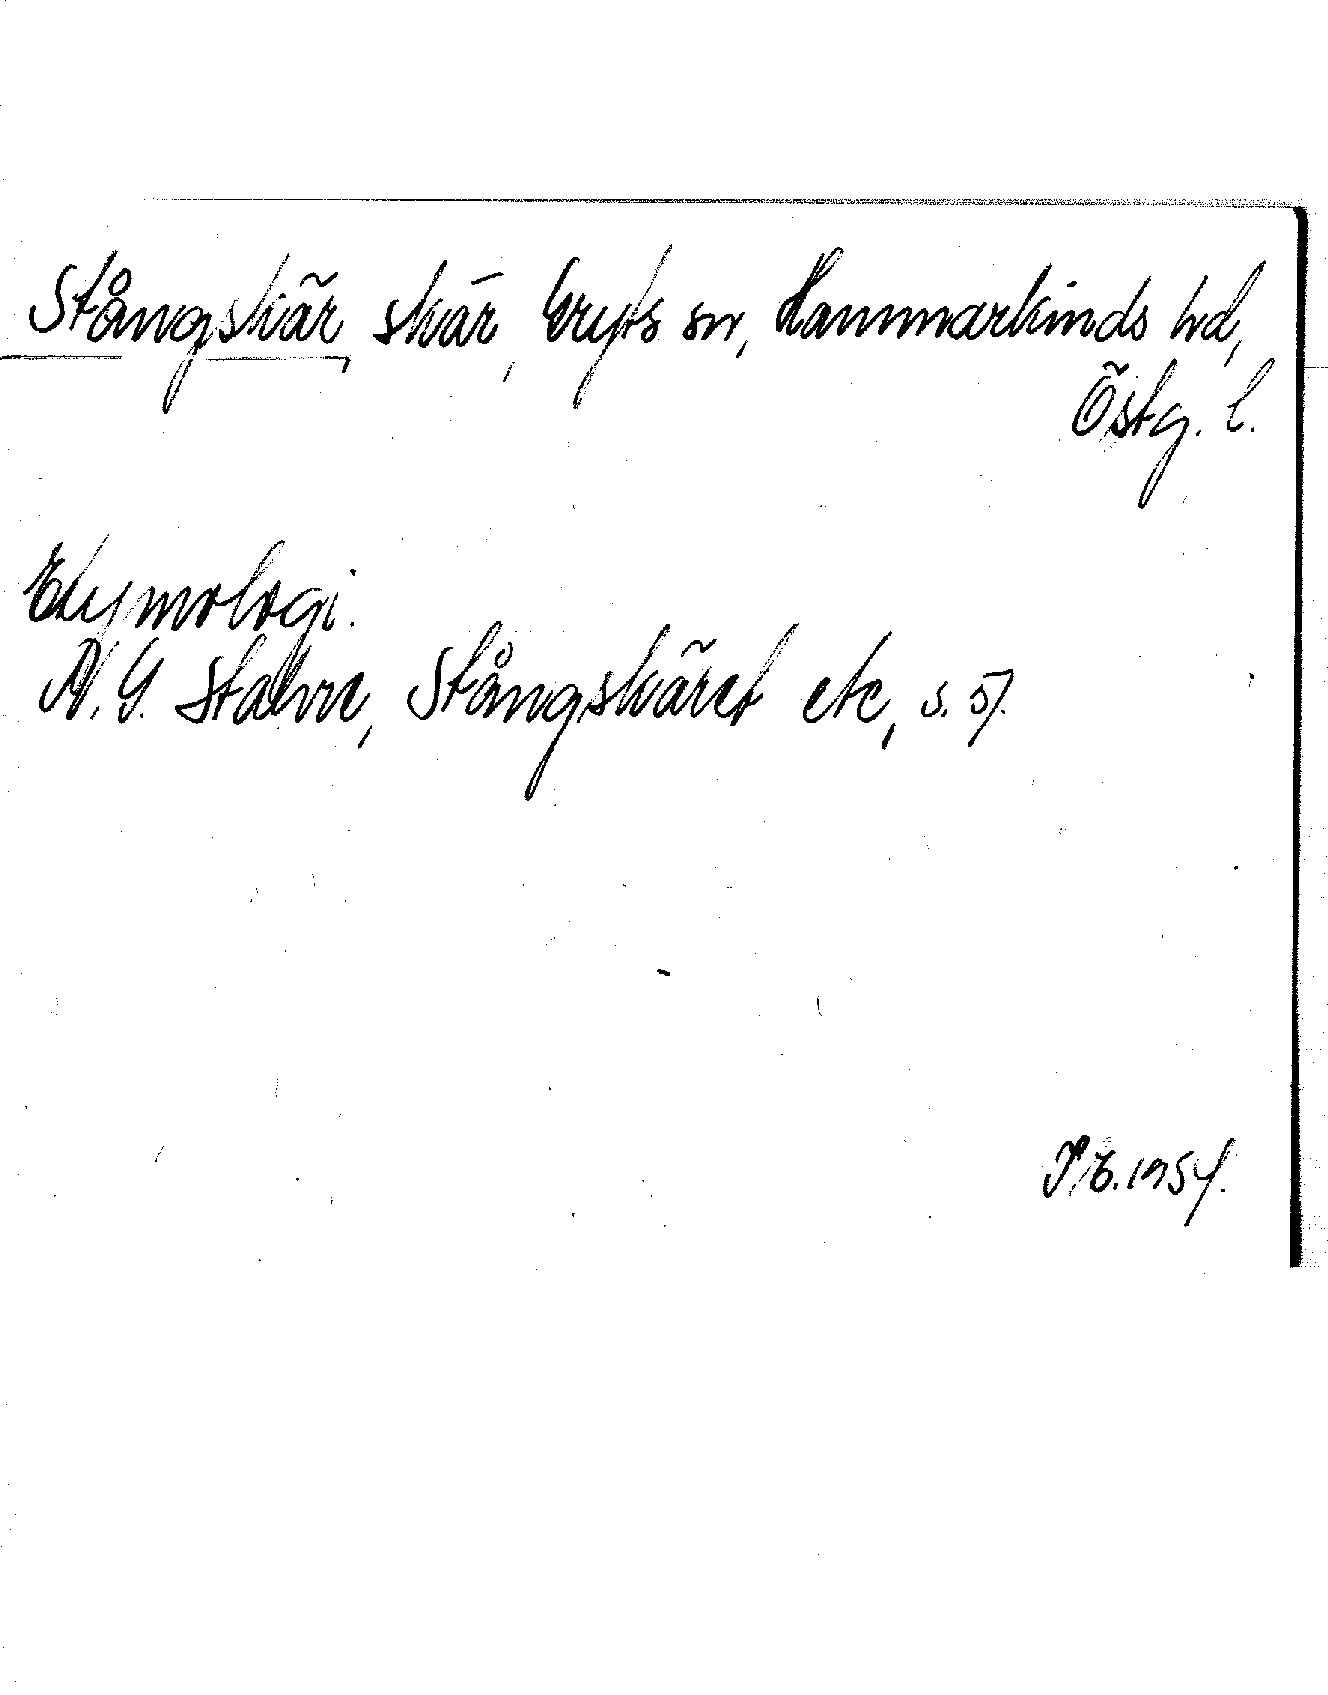 Stångskär, skär, Gryts sn, Hammarkinds hd,
Östg. l.
Etymologi.
N. G. Stahre, Stångskäret etc, s. 57.
P. E. 1954.